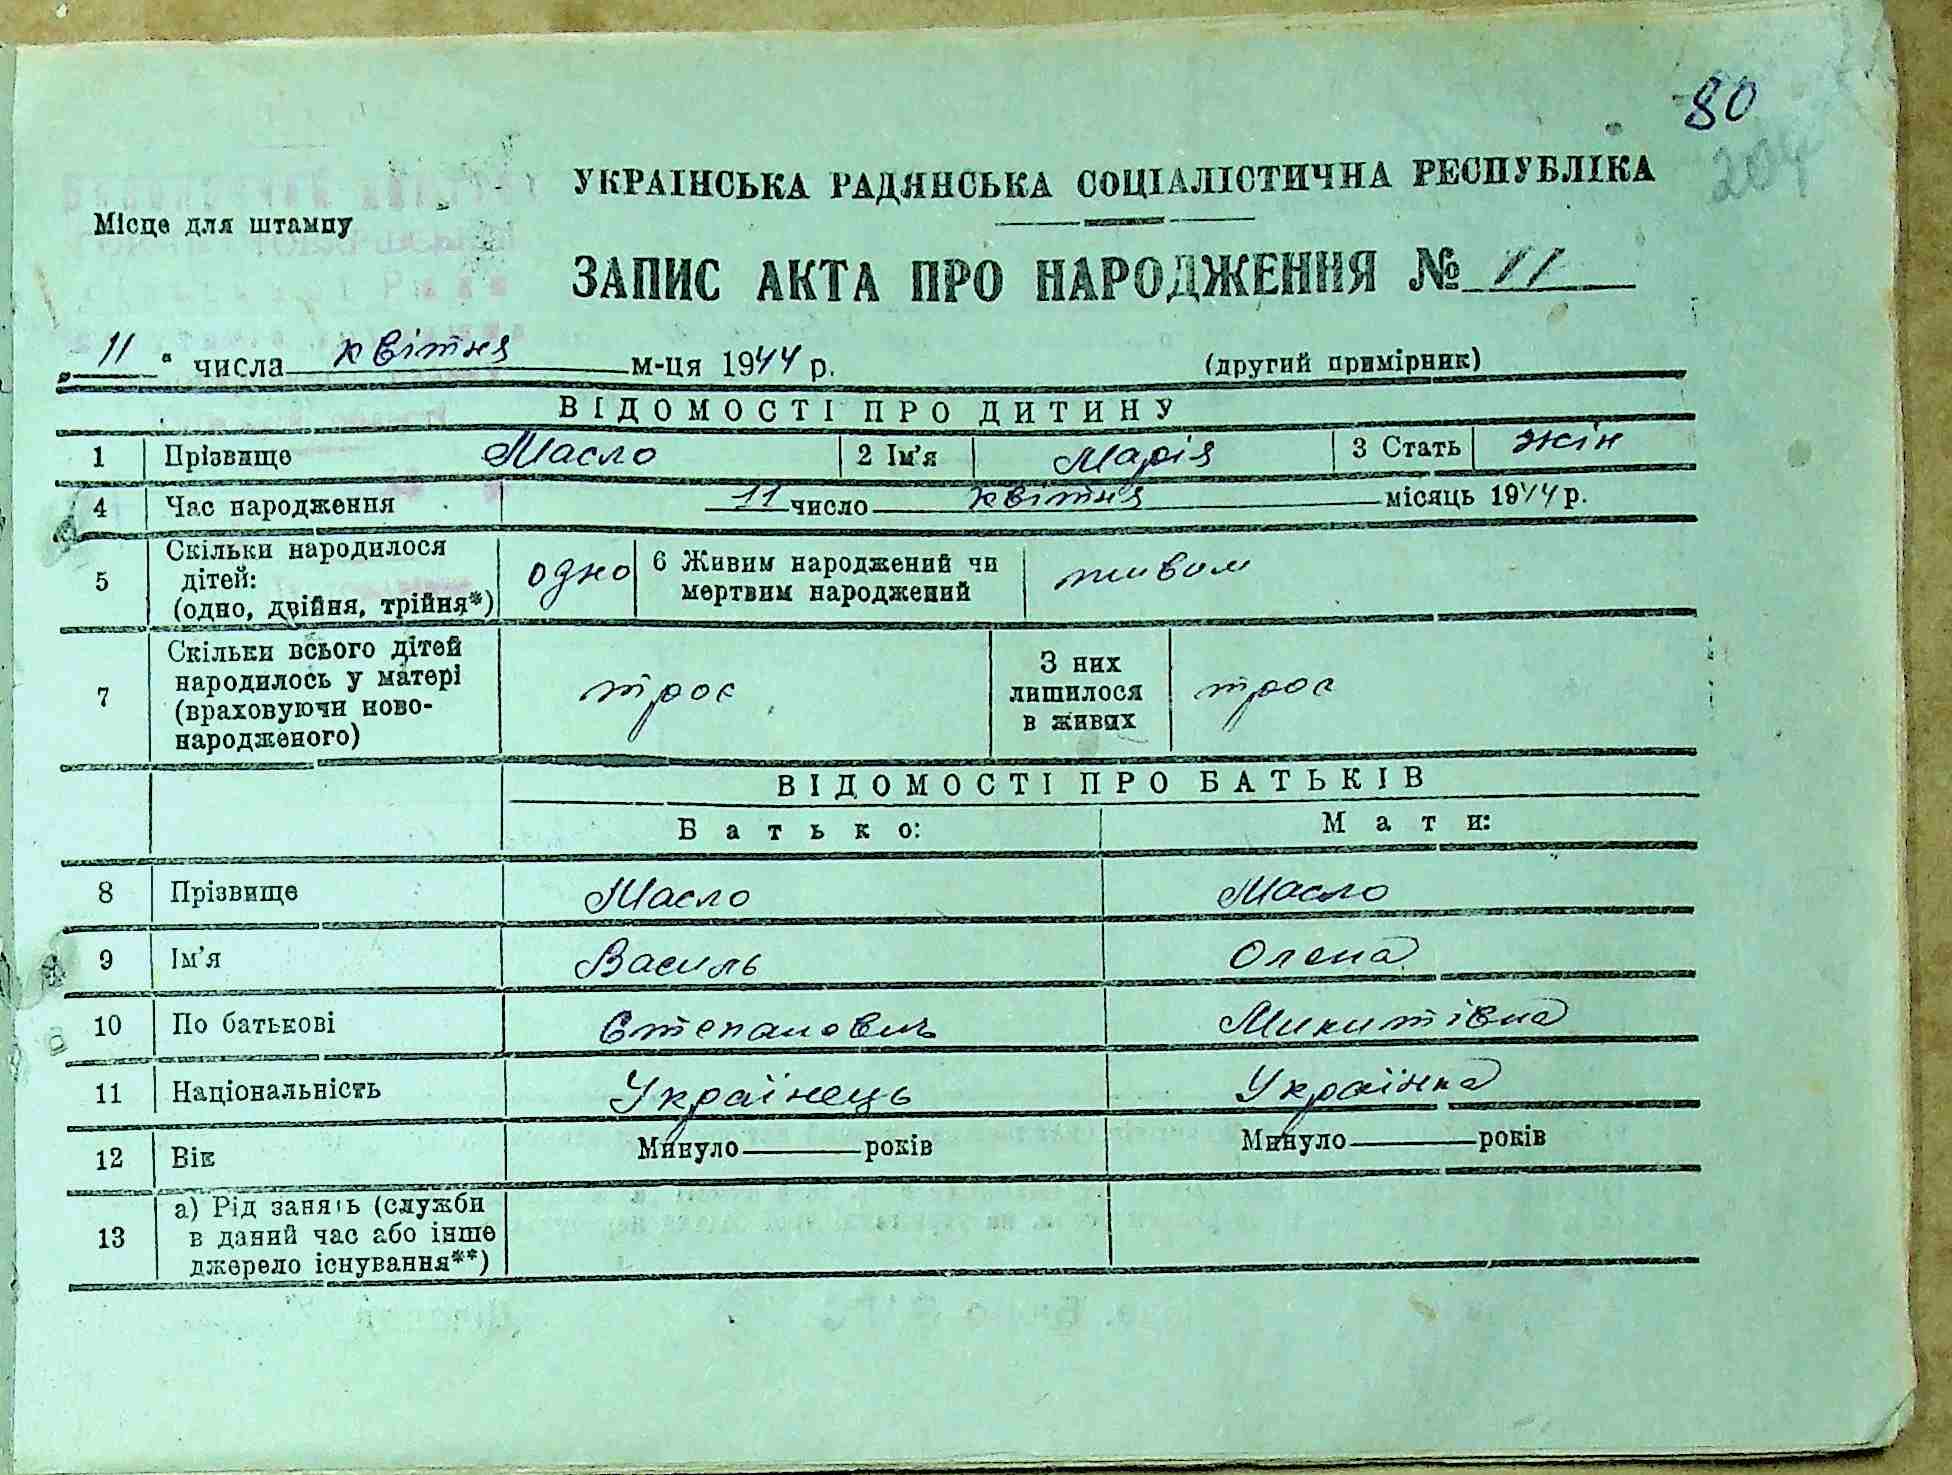 80
204
УКРАЇНСЬКА РАДЯНСЬКА СОЦІАЛІСТИЧНА РЕСПУБЛІКА
Місце для штампу
ЗАПИС АКТА ПРО НАРОДЖЕННЯ № 11
„ 11 “ числа квітня м-ця 1944 р. (другий примірник)
ВІДОМОСТІ ПРО ДИТИНУ
1 Прізвище Масло 2 Ім’я Марія 3 Стать жін
4 Час народження 11 число квітня місяць 1944 р.
Скільки народилося
5 дітей: одно 6 Живим народжений чи живим
(одно, двійня, трійня*) мертвим народжений
Скільки всього дітей
народилось у матері З них
7 (враховуючи ново- троє лишилося троє
народженого) в живих
ВІДОМОСТІ ПРО БАТЬКІВ
Батько: Мати:
8 Прізвище Масло Масло
9 Ім’я Василь Олена
10 По батькові Степанович Микитівна
11 Національність Українець Українка
12 Вік Минуло років Минуло років
а) Рід занять (служби
13 в даний час або інше
джерело існування**)